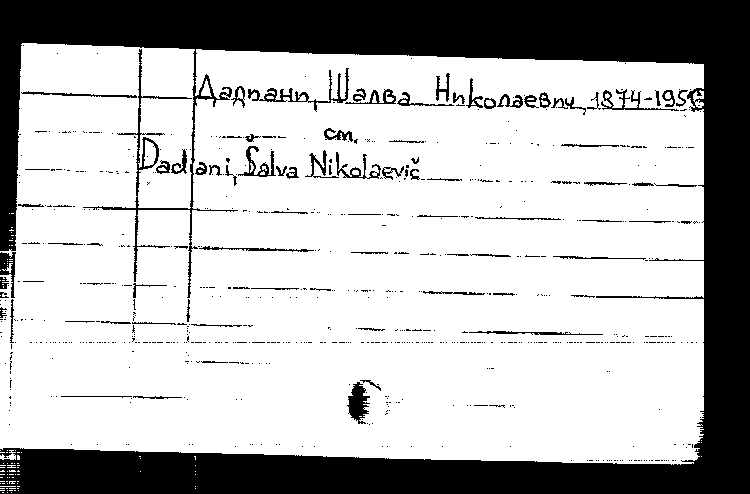 Дадиани, Шалва Николаевич, 1874-195
см.
Dadiani, Šalva Nikolaevič